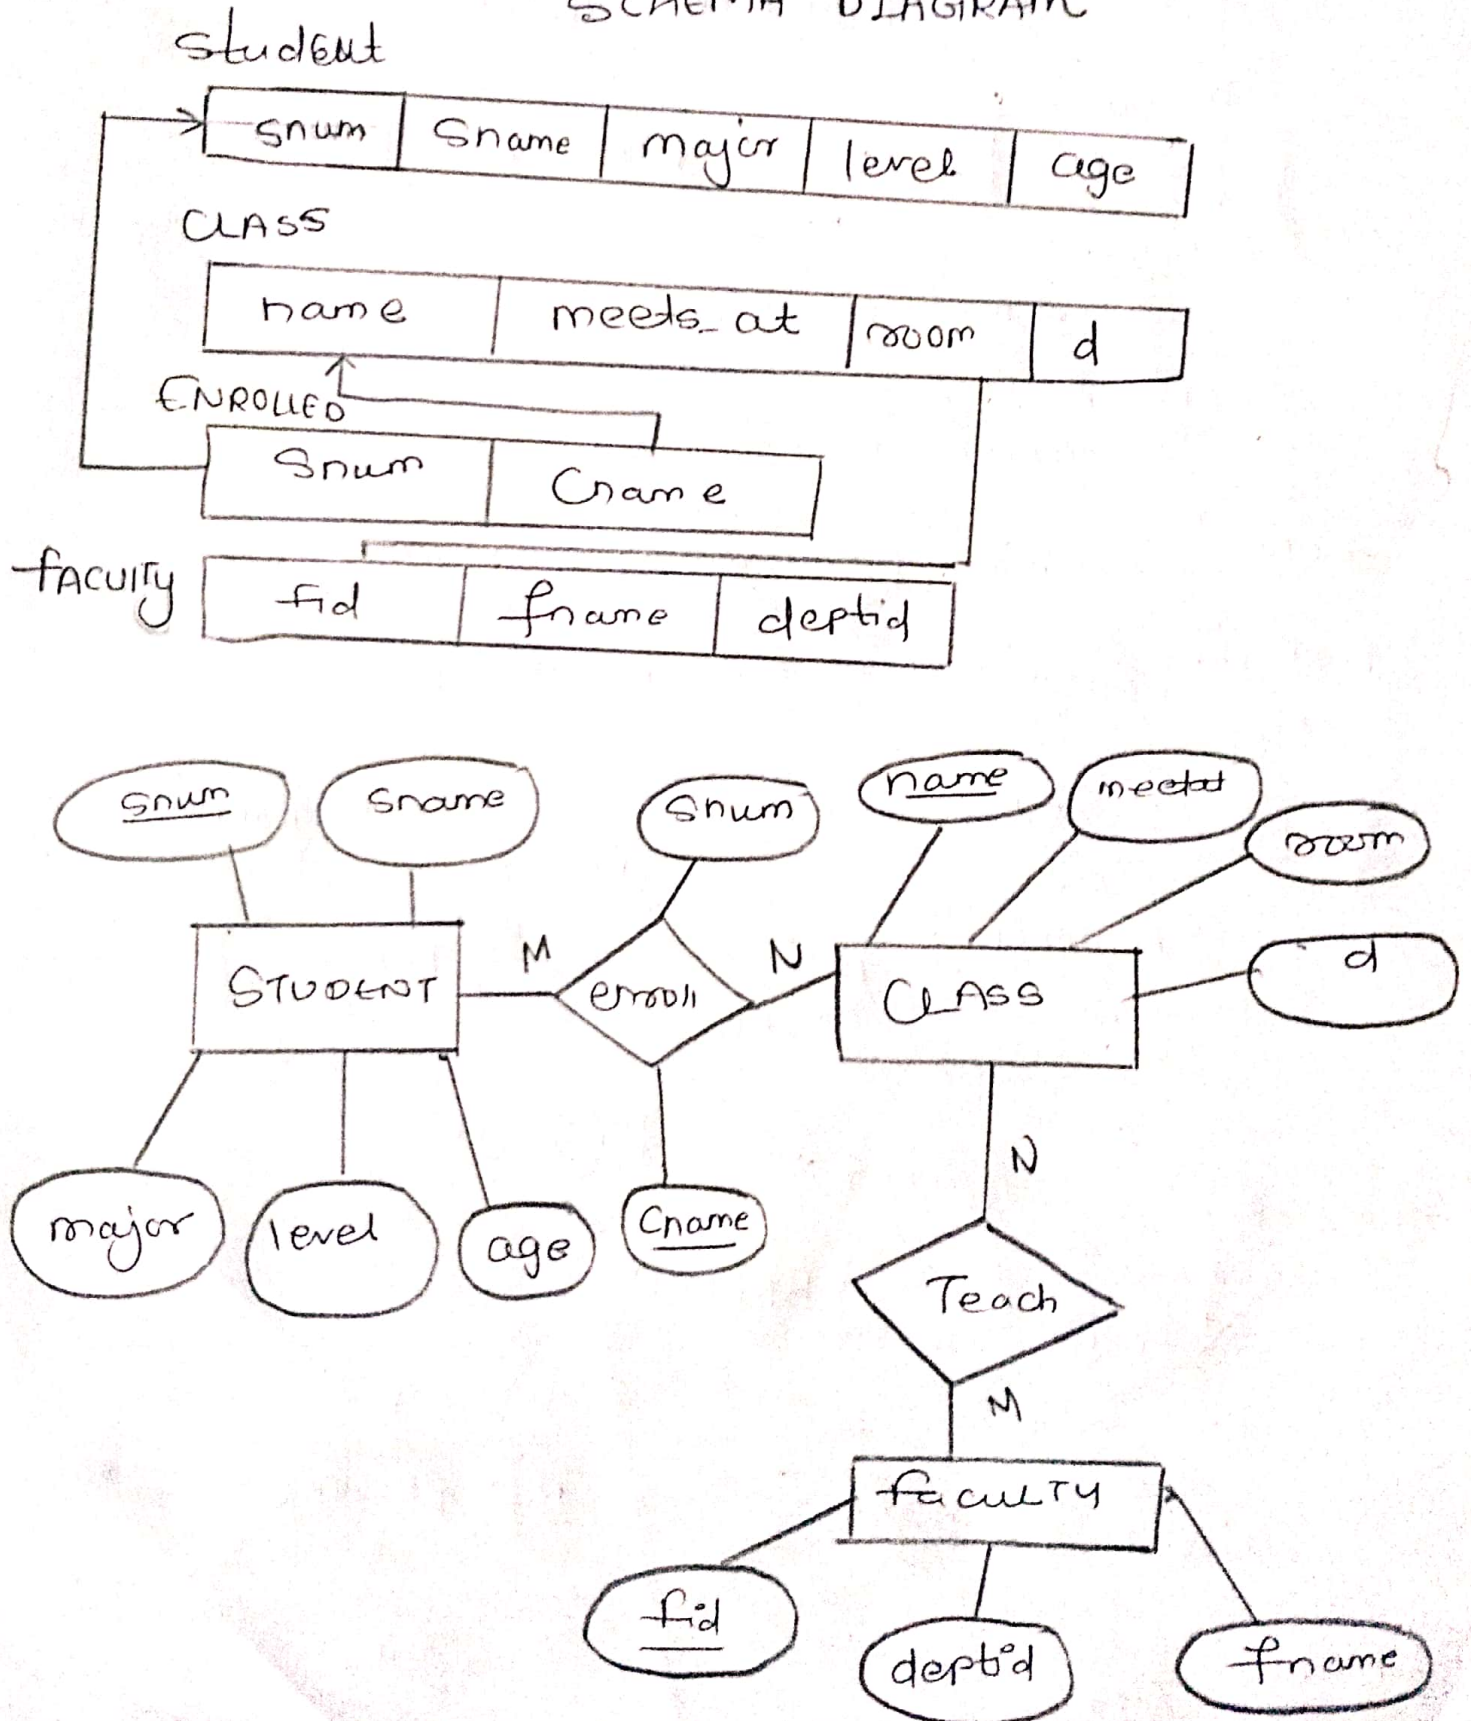 SCHEMA DIAGRAM
Student
snum Sname major level age
CLASS
name meets_at room d
ENROLLED
Snum Cname
FACULTY
fid fname deptid
snum Sname Snum name meetat room
M N d
STUDENT enroll CLASS
N
major level age Cname
Teach
M
FACULTY
fid deptid fname